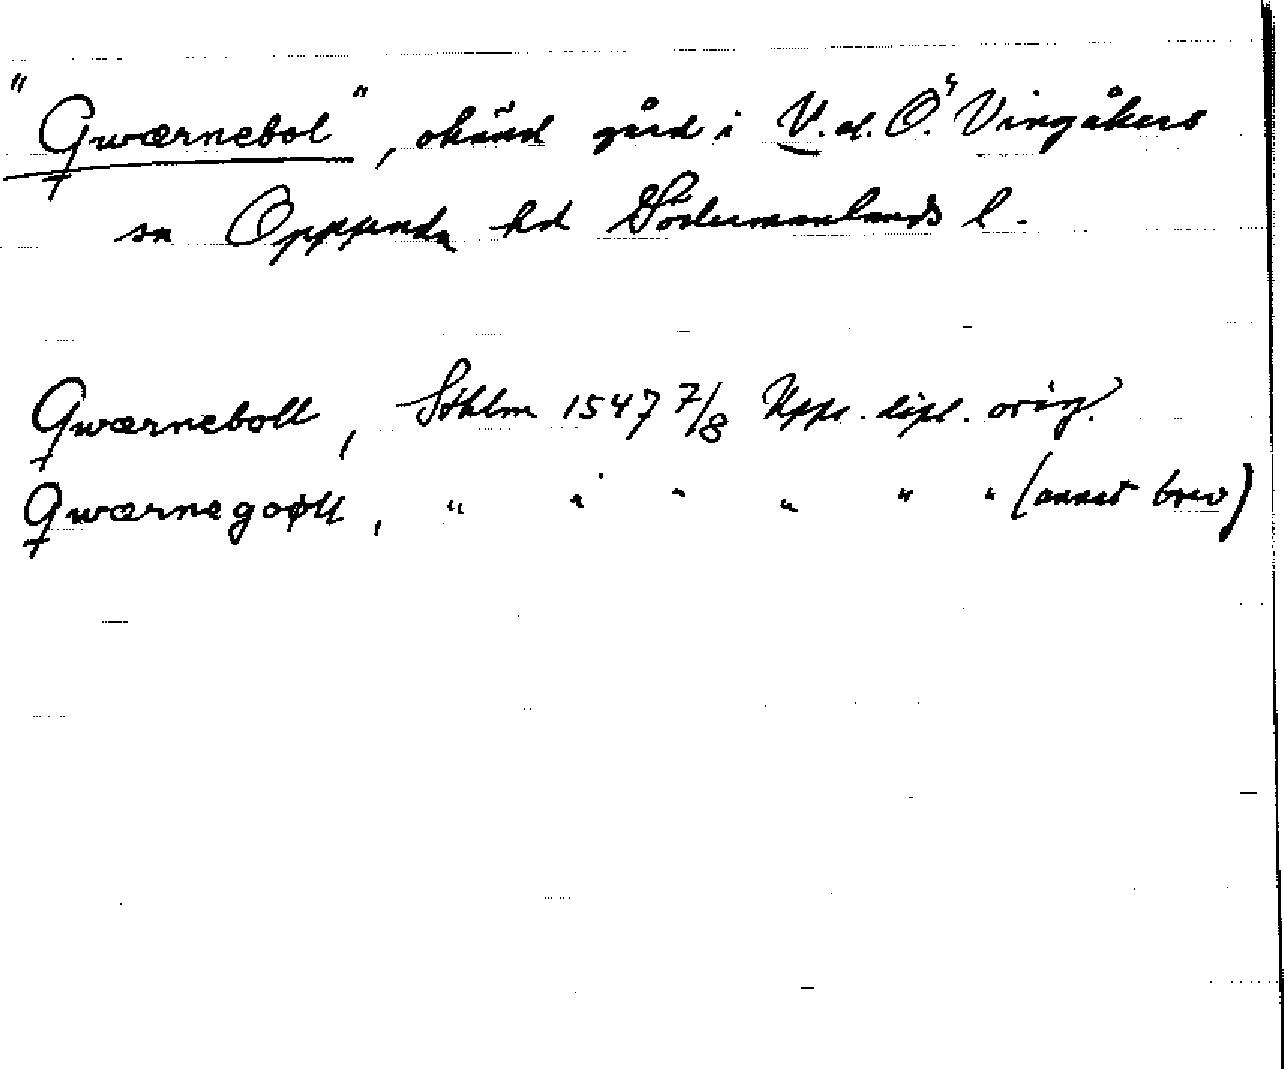 "Qwærnebol", okänd gård i V. el. Ö. Vingåkers
sn Oppunda hd Södermanlands l.
Qwærneboll, Sthlm 1547 7/8 Upps. dipl. orig.
Qwærnegoøll, " " " " " " (annat brev)